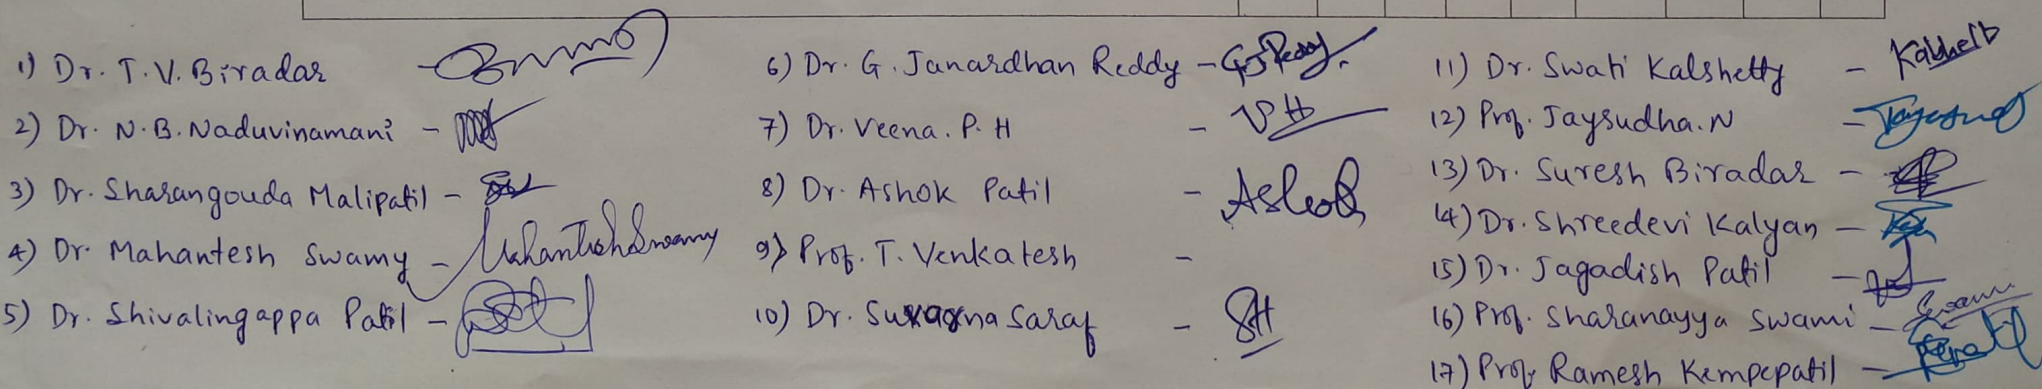 1) Dr. T. V. Biradar
2) Dr. N. B. Naduvinamani -
3) Dr. Sharangouda Malipatil -
4) Dr. Mahantesh Swamy - Mahantesh Swamy
5) Dr. Shivalingappa Patil -
6) Dr. G. Janardhan Reddy - GJReddy
7) Dr. Veena. P. H - VPH
8) Dr. Ashok Patil - Ashok
9) Prof. T. Venkatesh -
10) Dr. Suvarna Saraf - SH
11) Dr. Swati Kalshetty -
12) Prof. Jaysudha. N -
13) Dr. Suresh Biradar -
14) Dr. Shreedevi Kalyan -
15) Dr. Jagadish Patil -
16) Prof. Sharanayya Swami - Swami
17) Prof. Ramesh Kempepatil -